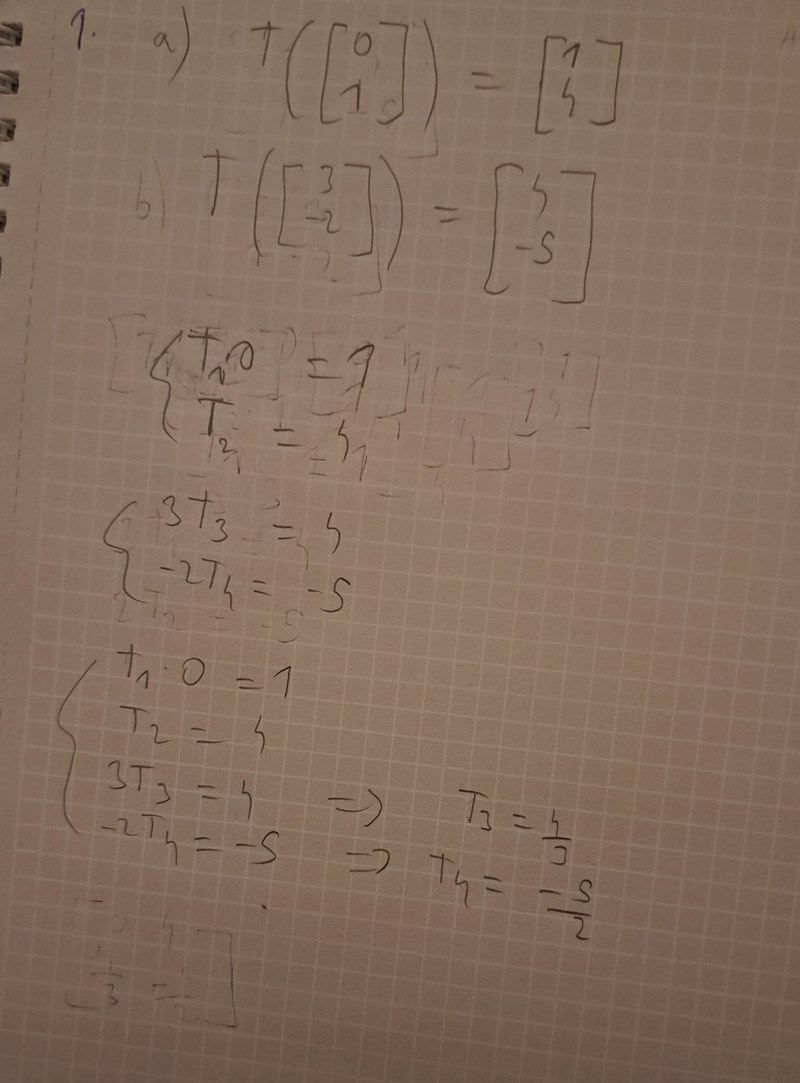 1. a) T([0 1]) = [1 4]
b) T([3 -2]) = [4 -5]
{ T₁0 = 1
T₂ = 4
{ 3T₃ = 4
-2T₄ = -5
{ T₁·0 = 1
T₂ = 4
3T₃ = 4 => T₃ = 4/3
-2T₄ = -5 => T₄ = -5/2